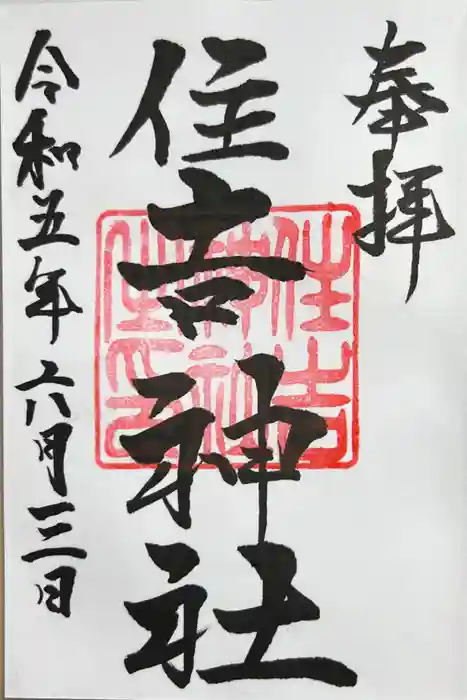 奉拝
住吉神社
令和五年六月三日
住吉
神社